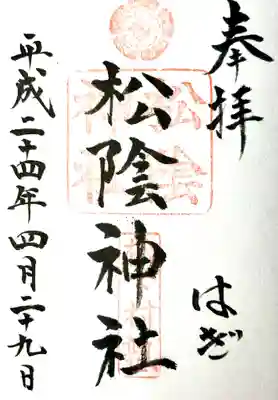 奉拝
はぎ
松陰神社
平成二十四年四月二十九日